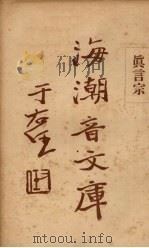 眞言宗
海潮音文庫
于右任